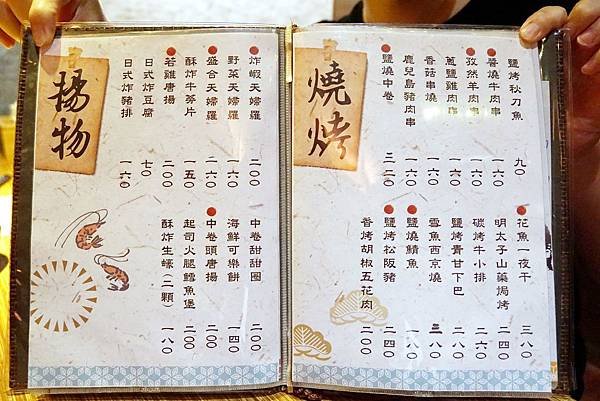 燒烤
鹽烤秋刀魚 九〇
醬燒牛肉串 一六〇
孜然羊肉串 一六〇
蔥鹽雞肉串
香菇串燒
鹿兒島豬肉串
鹽燒中卷 三二〇
花魚一夜干 三八〇
明太子山藥焗烤 二四〇
碳烤牛小排 二六〇
鹽烤青甘下巴
雲魚西京燒 三八〇
鹽燒鯖魚 一八〇
鹽烤松阪豬 二四〇
香烤胡椒五花肉 二〇〇
揚物
炸蝦天婦羅 二〇〇
野菜天婦羅 一六〇
盛合天婦羅 二六〇
酥炸牛蒡片 一五〇
若雞唐揚 二〇〇
日式炸豆腐 七〇
日式炸豬排 一六〇
中卷甜甜圈 二〇〇
海鮮可樂餅 一四〇
中卷頭唐揚 二〇〇
起司火腿鱈魚堡 二〇〇
酥炸生蠔(二顆) 一八〇